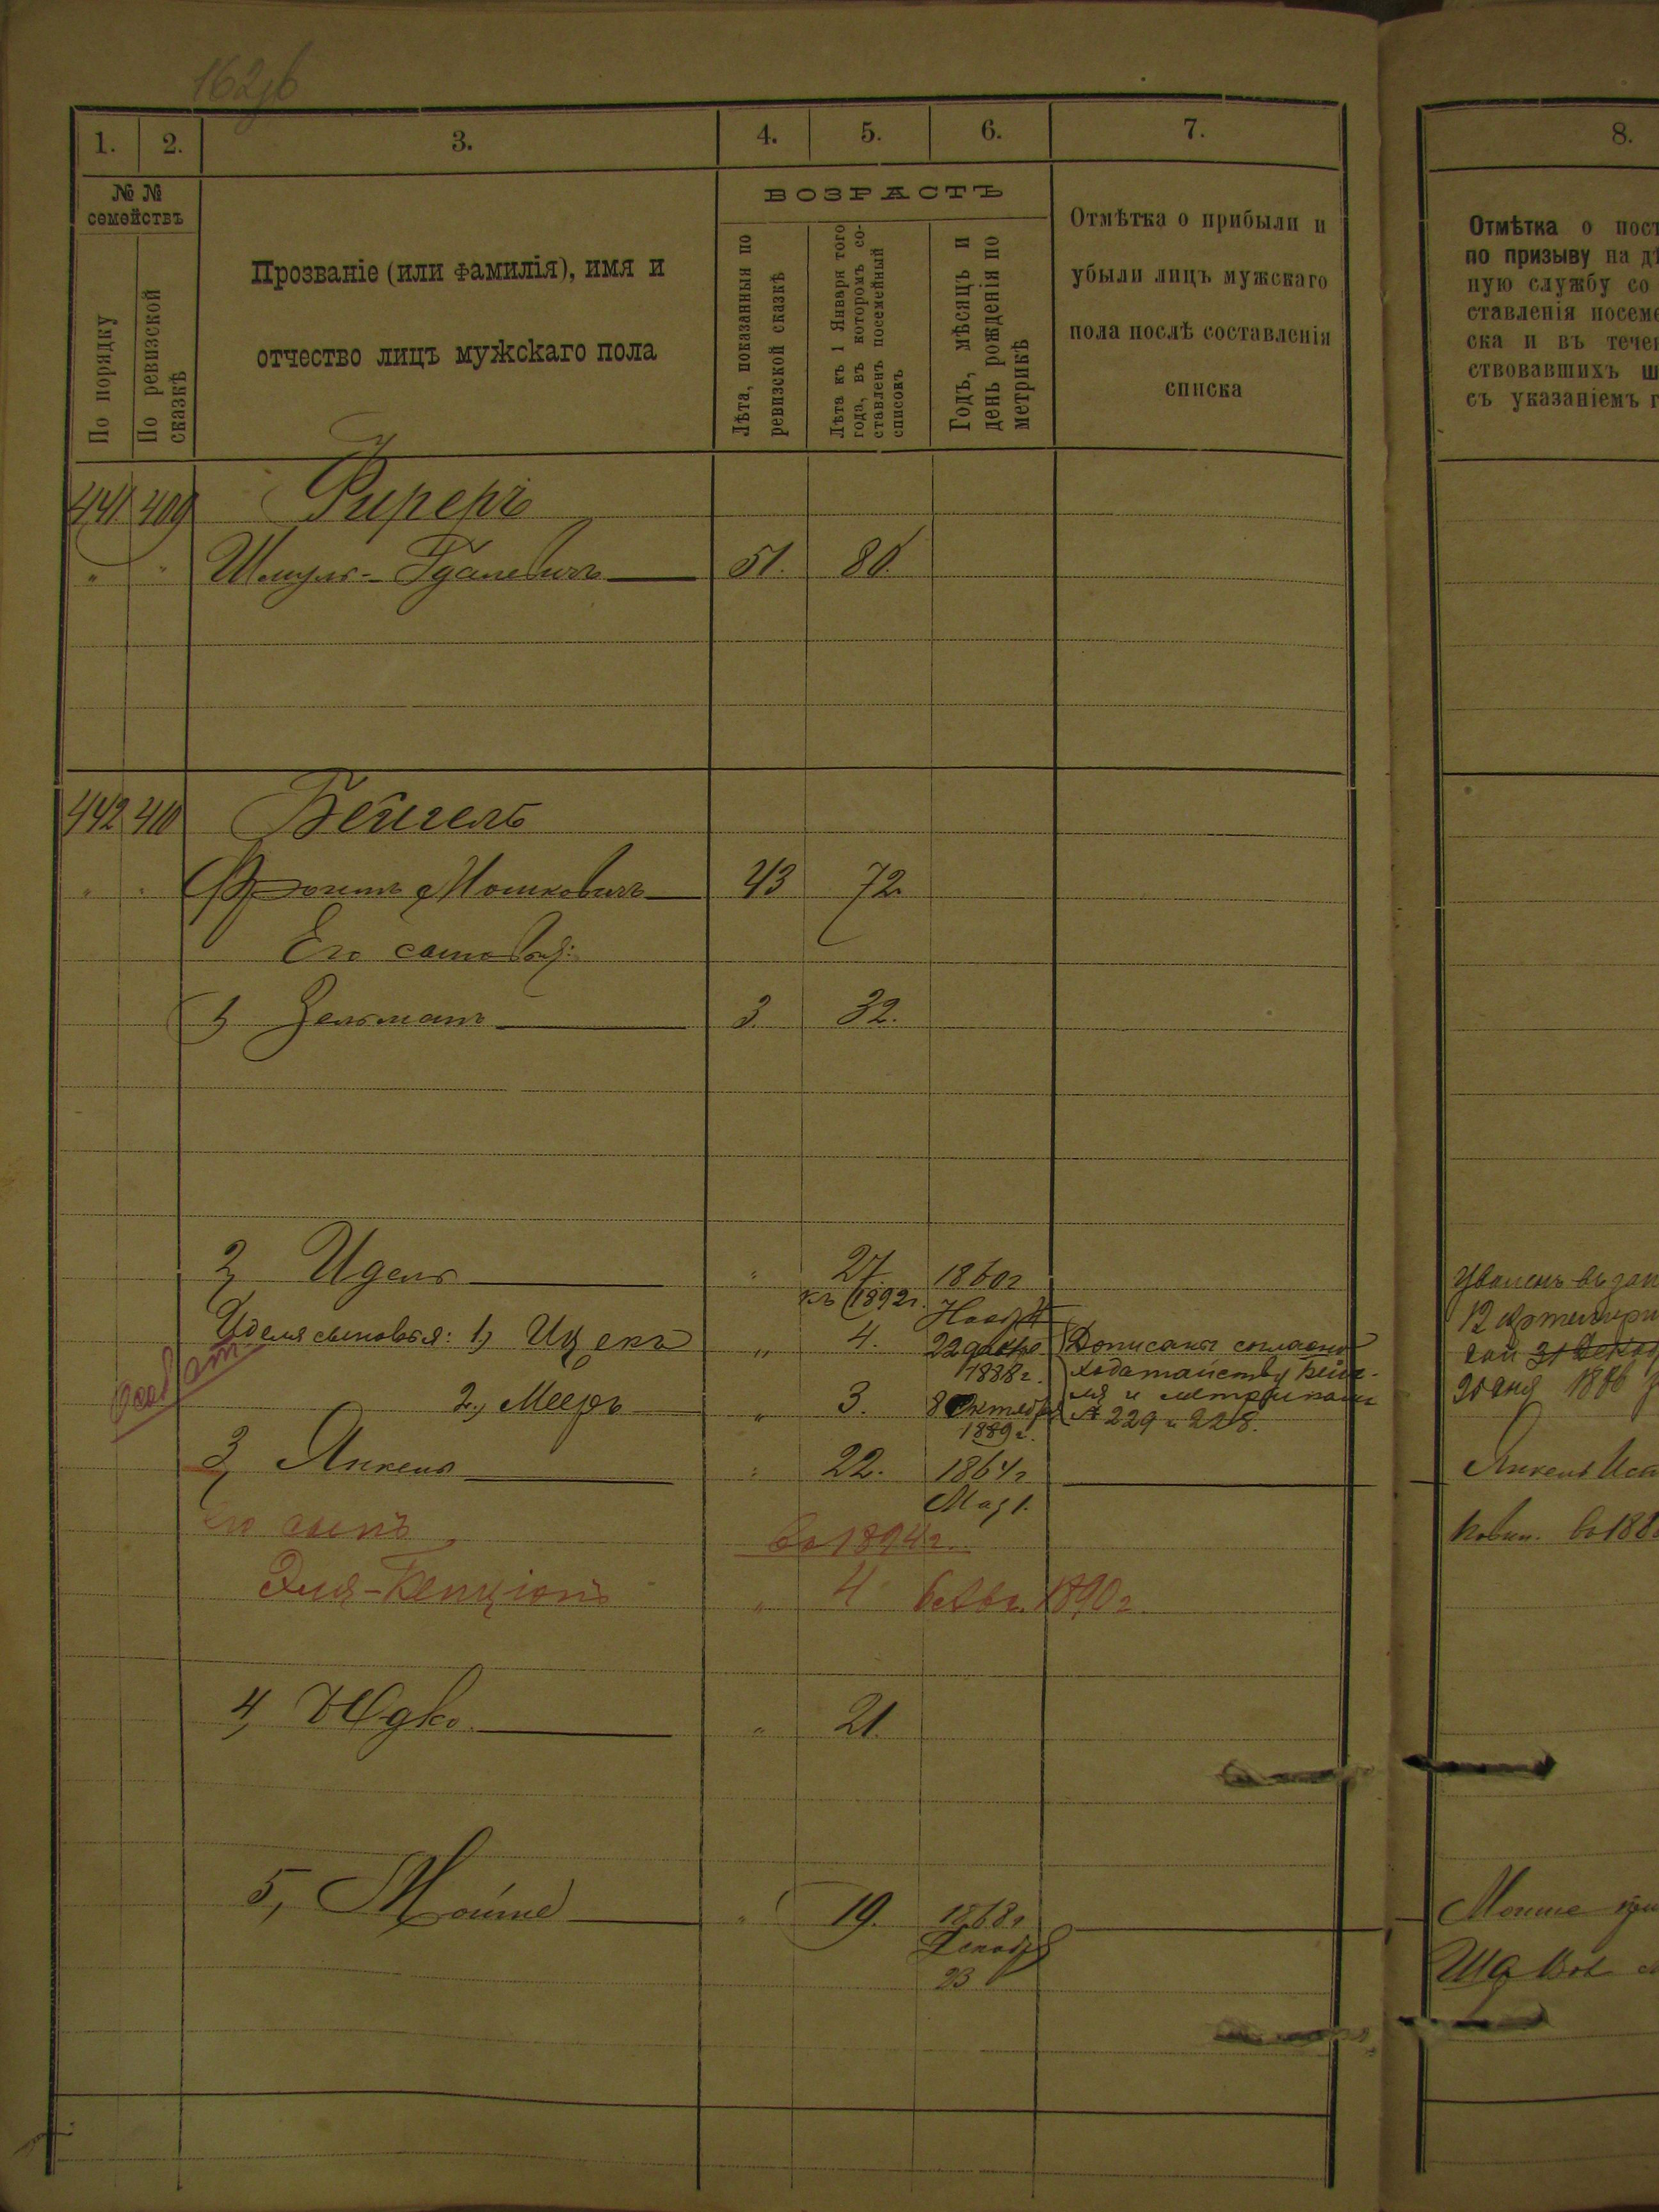 1. 2. 3. 4. 5. 6. 7.
№ № семействъ
По порядку
По ревизской сказкѣ
Прозваніе (или фамилія), имя и
отчество лицъ мужскаго пола
ВОЗРАСТЪ
Лѣта, показанныя по
ревизской сказкѣ
Лѣта къ 1 Января того
года, въ которомъ со-
ставленъ посемейный
списокъ
Годъ, мѣсяцъ и
день рожденія по
метрикѣ
Отмѣтка о прибыли и
убыли лицъ мужскаго
пола послѣ составленія
списка
441 409 Фиреръ
" " Шмуль-Гдалевичъ 51. 80.
442 410 Бейгель
" " Фроимъ Мошковичъ 43 72.
Его сыновья:
1, Зельманъ 3. 32.
2, Идель " 27. 1860г
къ 1892г.
Иделя сыновья: 1, Ицекъ " 4. 22
1888г.
Дописаны согласно
ходатайству Бейге-
ля и метрикамъ
№ 229 и 228.
2, Мееръ " 3. 8 Октября
1889г.
3, Янкель " 22. 1864г
Мая 1.
Его сынъ въ 1894г.
Эля-Бенціонъ " 4 6 Авг. 1890г.
4, Юдко " 21.
5, Мойше " 19. 1868г
Декабря
23
8.
Отмѣтка о пост
по призыву на дѣ
ную службу со
ставленія посеме
ска и въ течен
ствовавшихъ ш
съ указаніемъ г
Уволенъ въ зап
12
1886
Янкель Исп
повин. въ 188
Мойше при